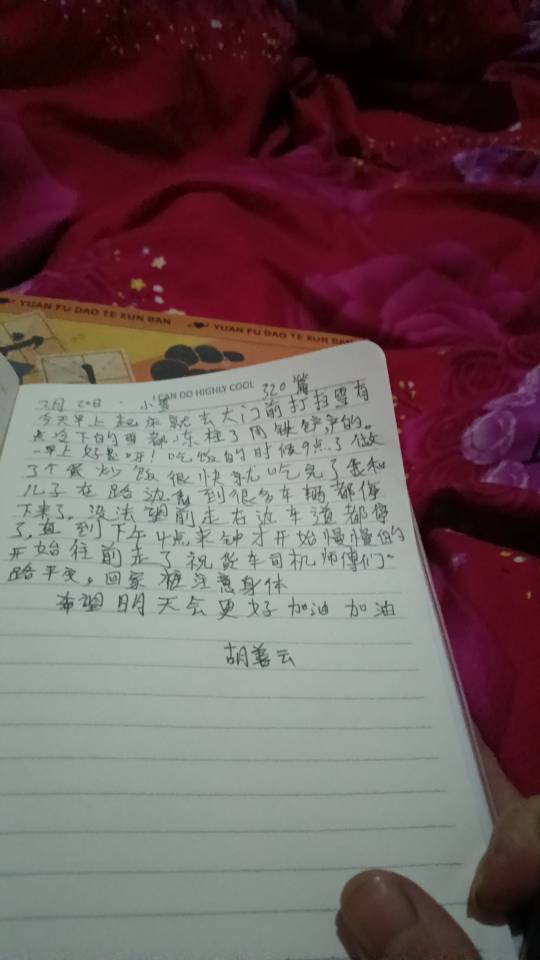 YUAN FU DAO TE XUN BAN YUAN FU DAO TE XUN BAN
CAN DO HIGHLY COOL
2月20日 · 小雪 320篇
今天早上起床就去大门前打扫雪有
点冷下的雪都冻柱了用铁铲产的。
一早上好累呀！吃饭的时候9点了做
了个蛋炒饭很快就吃完了我和
儿子在路边看到很多车辆都停
下来了。没法望前走右边车道都停
了，直到下午4点来钟才开始慢慢的
开始往前走了祝货车司机师傅们一
路平安，回家 注意身体
希望明天会更好加油 加油
胡善云